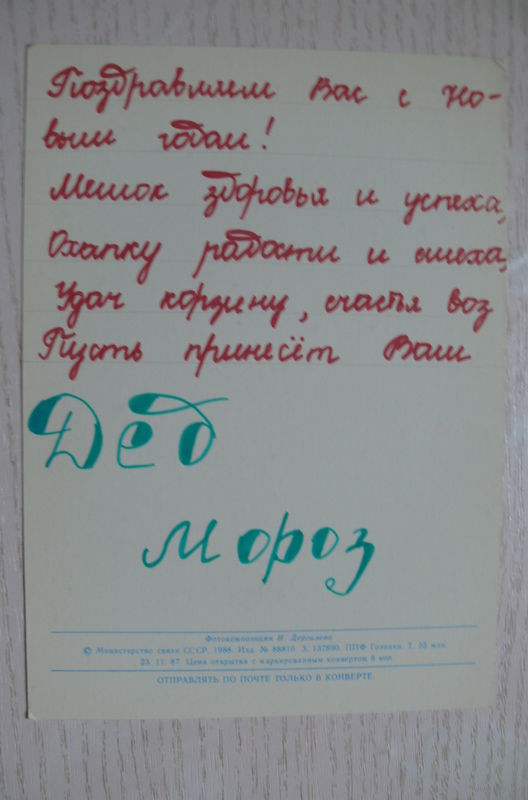 Поздравляем Вас с Но-
вым годом!
Мешок здоровья и успеха,
Охапку радости и смеха,
Удач корзину, счастья воз
Пусть принесёт Вам
Дед
Мороз
Фотокомпозиция И. Дергилева
© Министерство связи СССР, 1988. Изд. № 88810. З. 137890. ППФ Гознака. Т. 55 млн
23. 11. 87. Цена открытки с маркированным конвертом 8 коп.
ОТПРАВЛЯТЬ ПО ПОЧТЕ ТОЛЬКО В КОНВЕРТЕ.